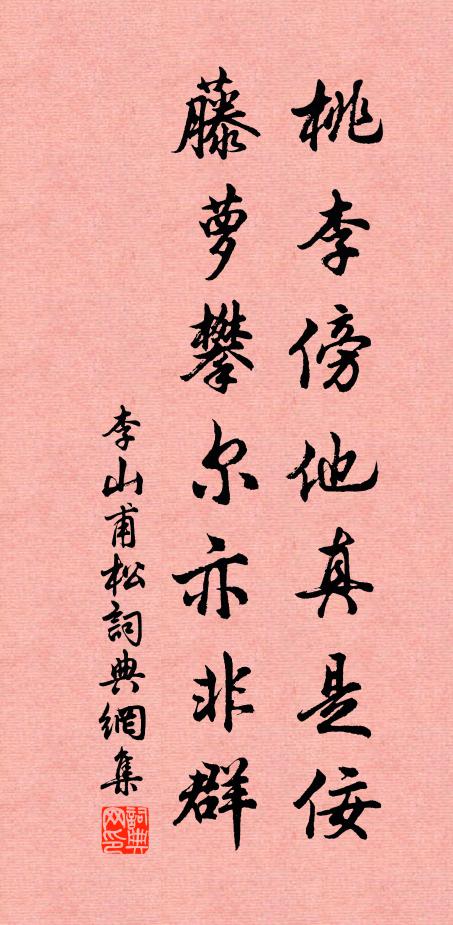 桃李傍他真是佞
藤萝攀尔亦非群
李山甫松詞典網集
詞典网印